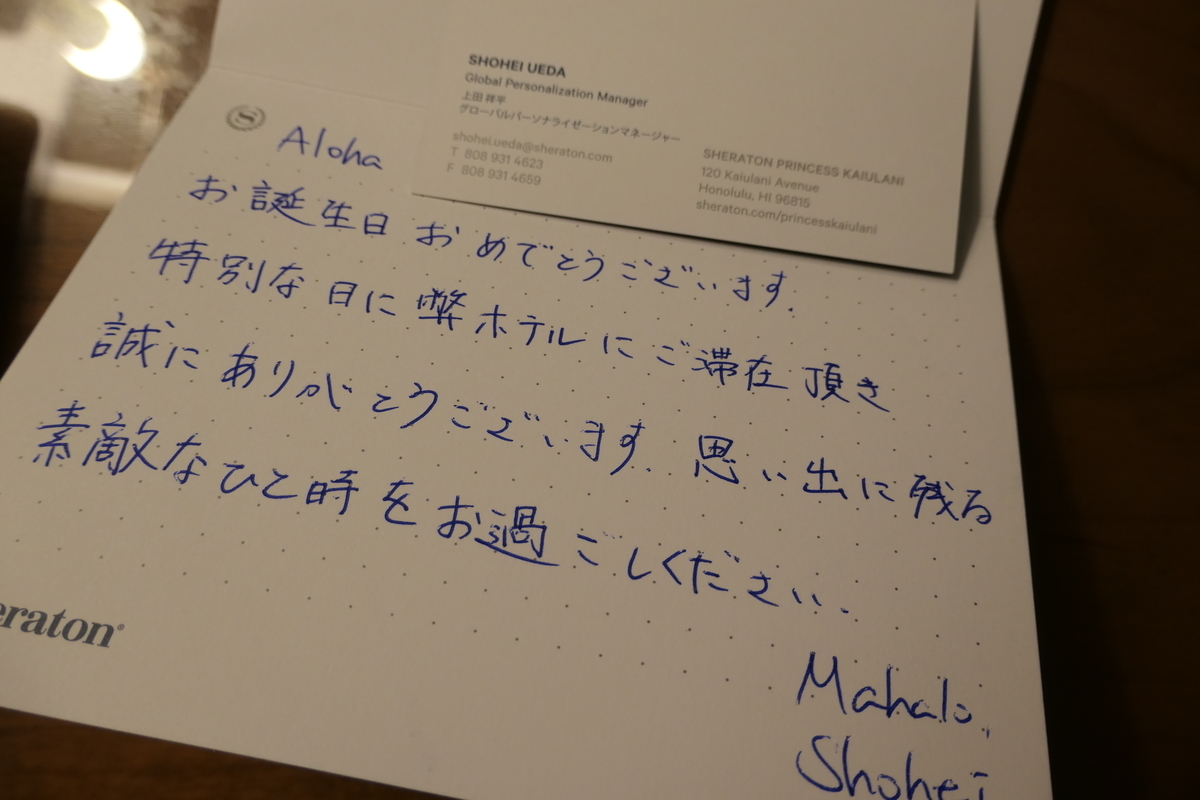 SHOHEI UEDA
Global Personalization Manager
上田 祥平
グローバルパーソナライゼーションマネージャー
shohei.ueda@sheraton.com
T 808 931 4623
F 808 931 4659
SHERATON PRINCESS KAIULANI
120 Kaiulani Avenue
Honolulu, HI 96815
sheraton.com/princesskaiulani
S
Aloha
お誕生日おめでとうございます.
特別な日に弊ホテルにご滞在頂き
誠にありがとうございます. 思い出に残る
素敵なひと時をお過ごしください.
Mahalo,
Shohei
eraton®